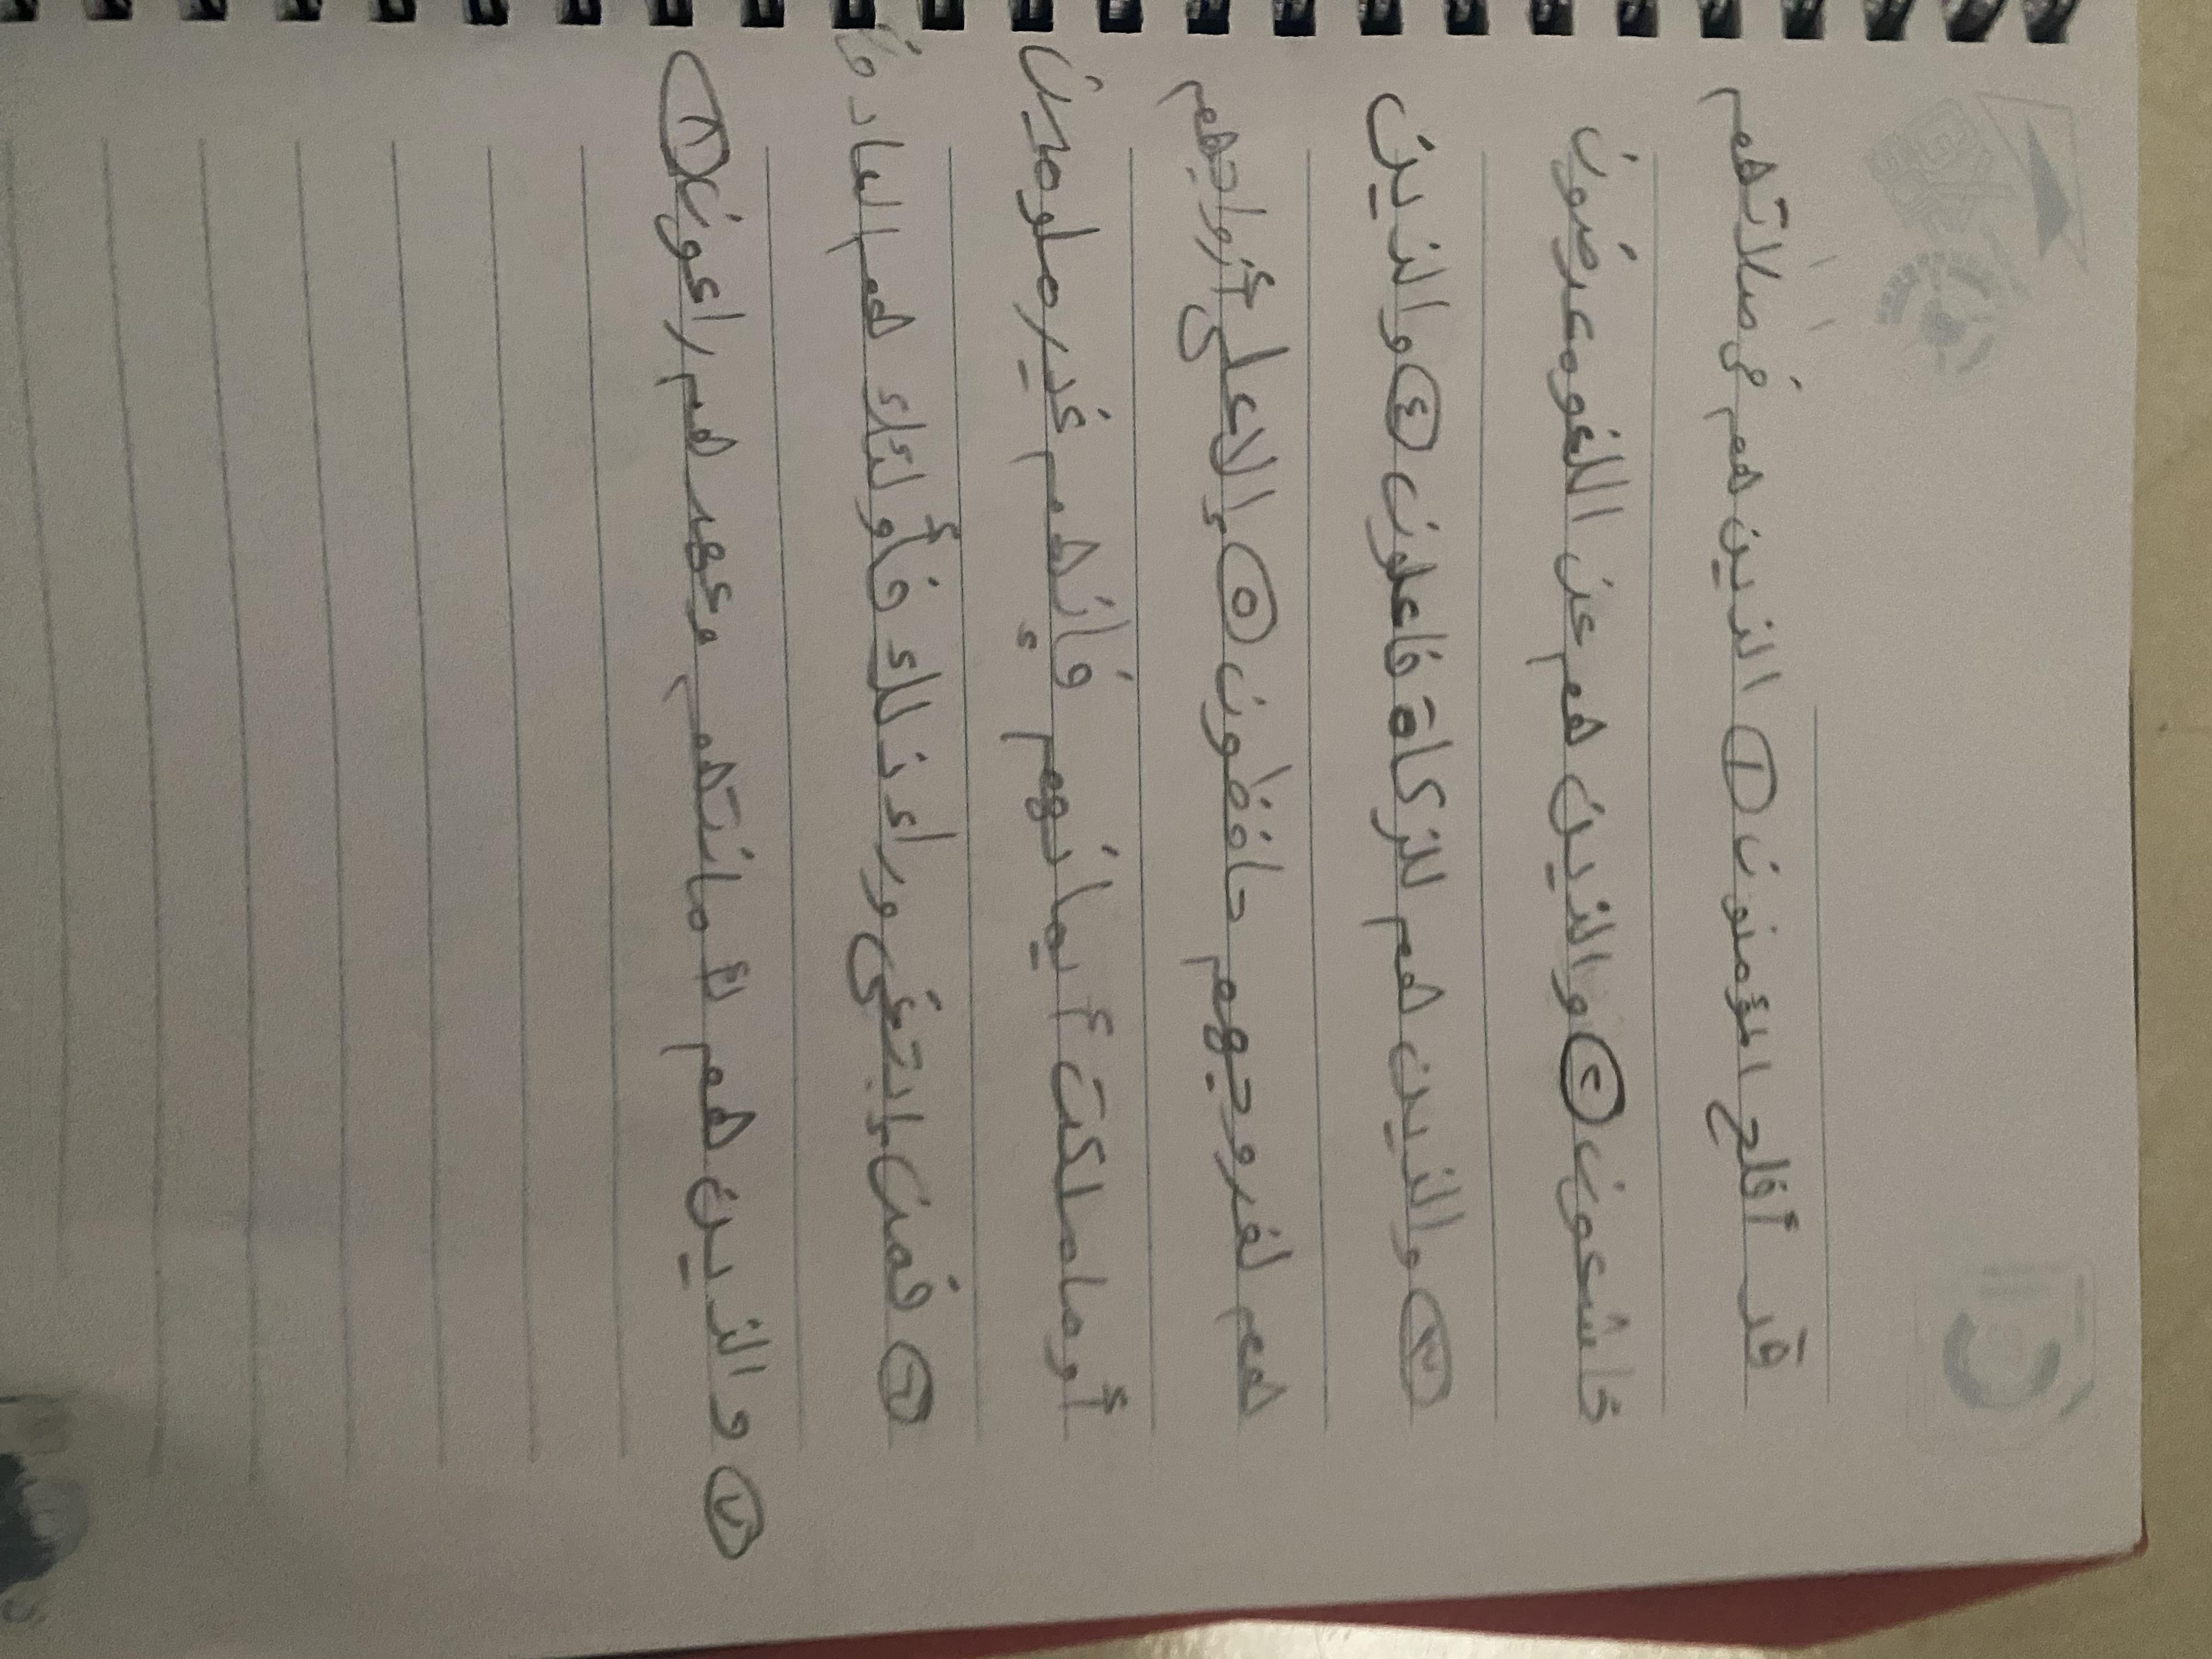 قد أفلح المؤمنون ١ الذين هم في صلاتهم
خاشعون ٢ والذين هم عن اللغو معرضون
٣ والذين هم للزكاة فاعلون ٤ والذين
هم لفروجهم حافظون ٥ إلا على أزواجهم
أو ما ملكت أيمانهم فإنهم غير ملومين
٦ فمن إبتغى وراء ذلك فأولئك هم العادون
٧ والذين هم لأمانتهم وعهدهم راعون ٨